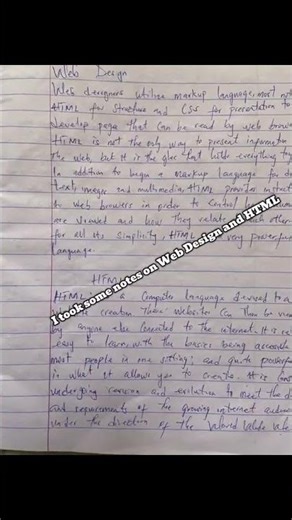 Web Design
Web designers utilize markup language, most not
HTML for structure and CSS for presentation to
develop page that can be read by web browse
HTML is not the only way to present information
The web, but it is the glue that holds everything t
In addition to being a markup language for
text, images and multimedia, HTML provides instruct
to web browsers in order to control how
are viewed and how they relate other
for all its simplicity, HTML very powerful
language.
I took some notes on Web Design and HTML
HTML
HTML a Computer language devised to a
creation These websites can then be view
by anyone else connected to the internet. It is
easy to learn with the basics being accessible
most people in one sitting; and quite powerful
in what it allows you to create. It is
undergoing revision and evolution to meet the d
and requirements of the growing internet
under the direction of the